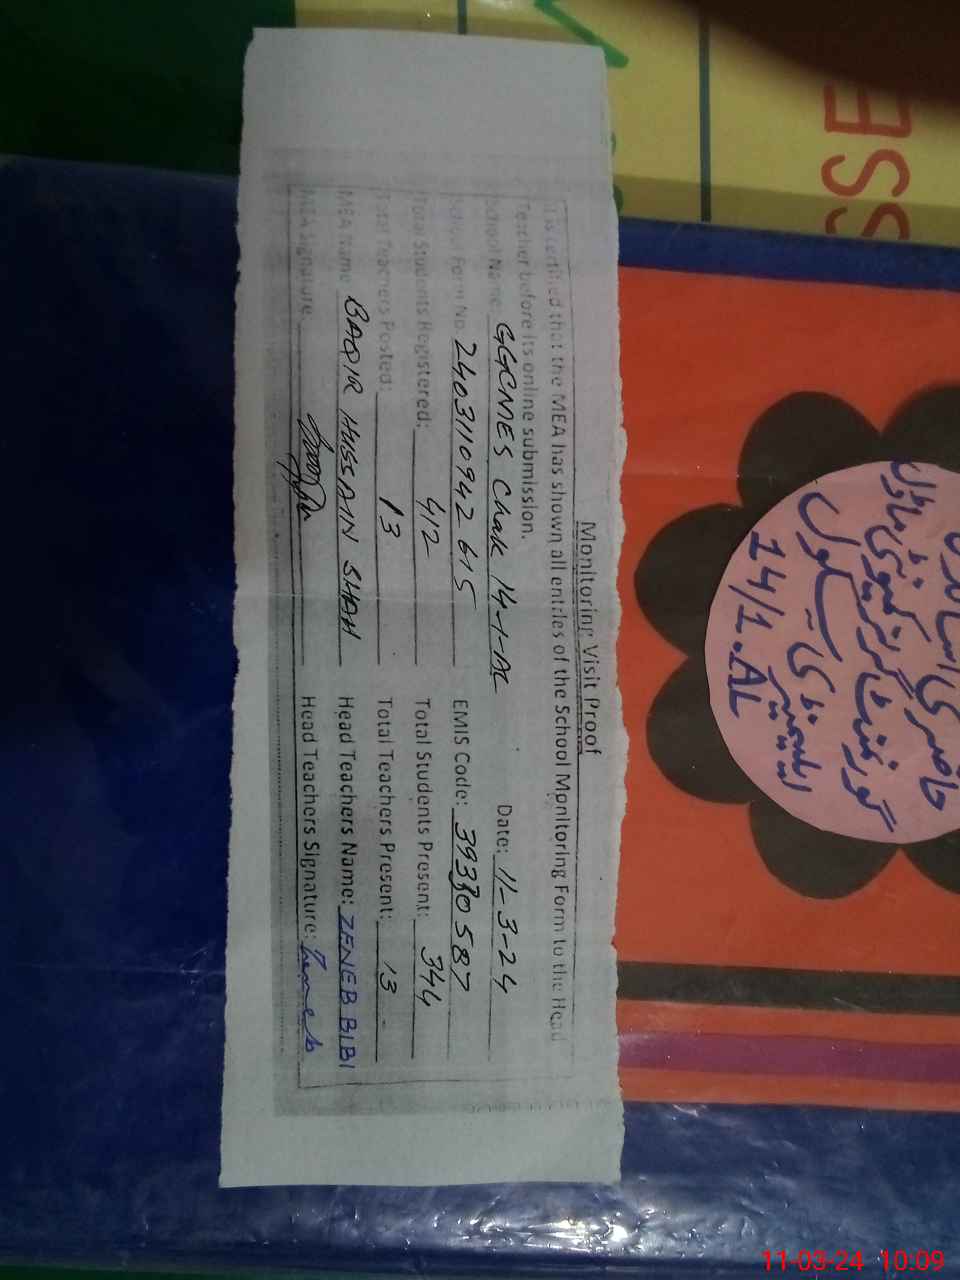 Monitoring Visit Proof
It is certified that the MEA has shown all entries of the School Monitoring Form to the Head
Teacher before its online submission.
School Name: GGCMES Chak 14-1-AL Date: 11-3-24
School Form No. 2403110942615 EMIS Code: 39330587
Total Students Registered: 412 Total Students Present: 344
Total Teachers Posted: 13 Total Teachers Present: 13
MEA Name BAQIR HUSSAIN SHAH Head Teachers Name: ZENEB BIBI
MEA Signature: Head Teachers Signature: Zeneb
SSE
حاضری
گورنمنٹ گرلز کمیونٹی ماڈل
ایلیمنٹری سکول
14/1.AL
11-03-24 10:09